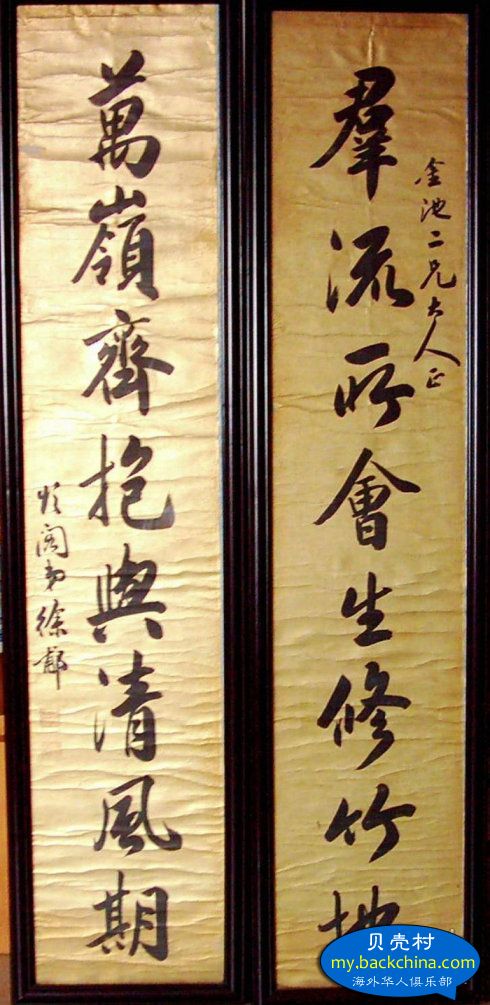 金池二兄大人正
羣流所會生修竹地
萬嶺齊抱與清風期
頌閣弟徐郙
贝壳村
my.backchina.com
海外华人俱乐部